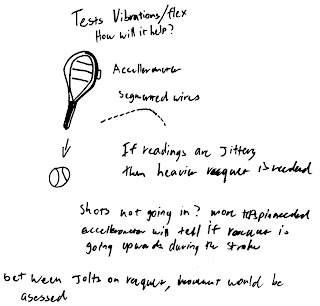 Tests Vibrations/flex
How will it help?
Accellerometer
Segmented wires
If readings are Jittery
then heavier racquet is needed
Shots not going in? more topspin needed
accellerometer will tell if racquet is
going upwards during the stroke
between Jolts on racquet, movement would be
asessed